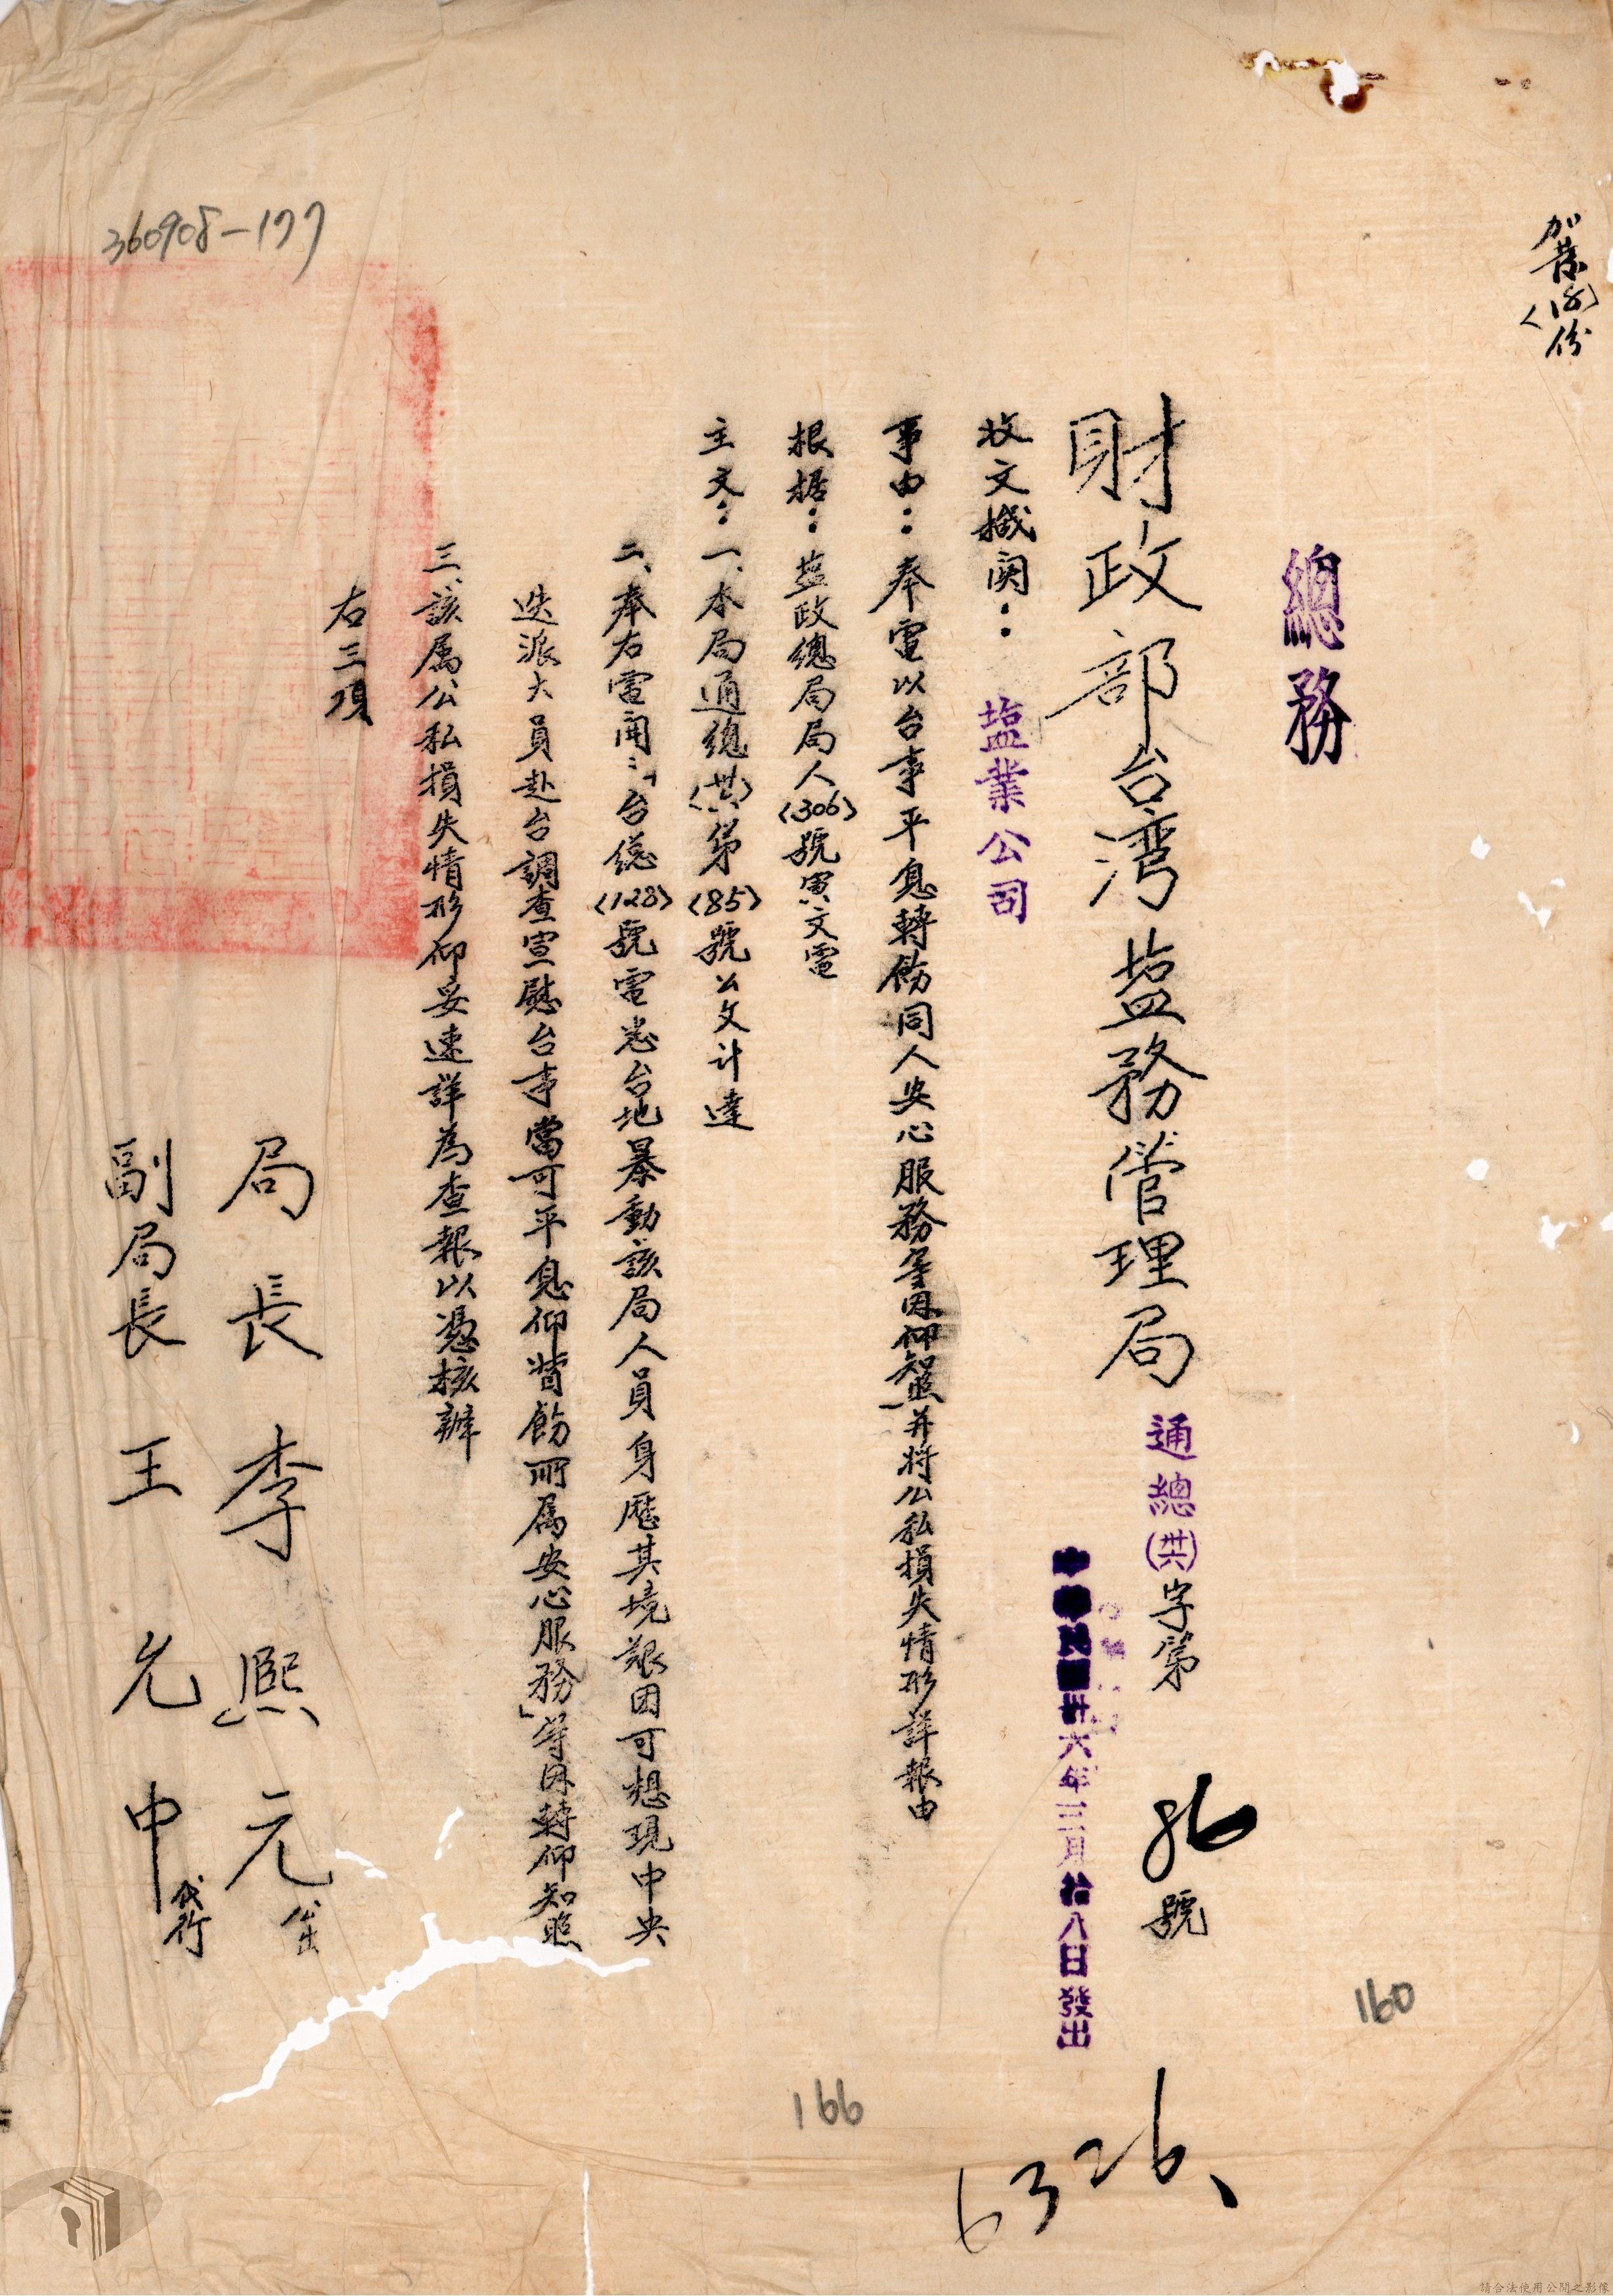 加蓋印份
總務
財政部台湾塩務管理局 通總(卅六)字第 86 號
中華民國卅六年三月拾八日發出
收文機関：塩業公司
事由：奉電以台事平息轉飭同人安心服務等因仰知照并将公私損失情形詳報由
根据：塩政總局局人(306)號寅文電
主文：一、本局通總(卅六)第(85)號公文计達
二、奉右電開：「台總(128)號電悉台地暴動該局人員身歷其境艱困可想現中央
迭派大員赴台調查宣慰台事當可平息仰督飭所属安心服務」等因轉仰知照
三、該属公私損失情形仰妥速詳為查報以憑核辦
右三項
局長李熙元公出
副局長王允中代行
360908-177
160
166
6326、
請合法使用公開之影像